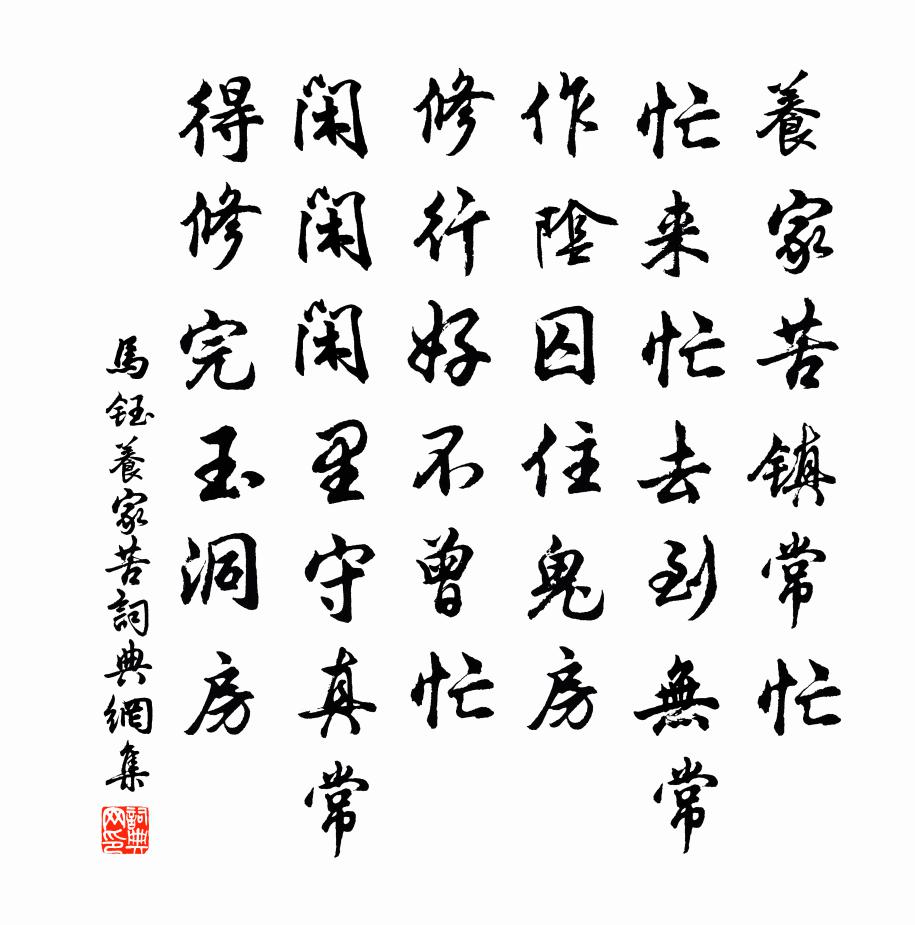 養家苦鎮常忙
忙来忙去到無常
作陰囚住鬼房
修行好不曾忙
閑閑閑里守真常
得修完玉洞房
馬鈺養家苦詞典網集
詞典网印